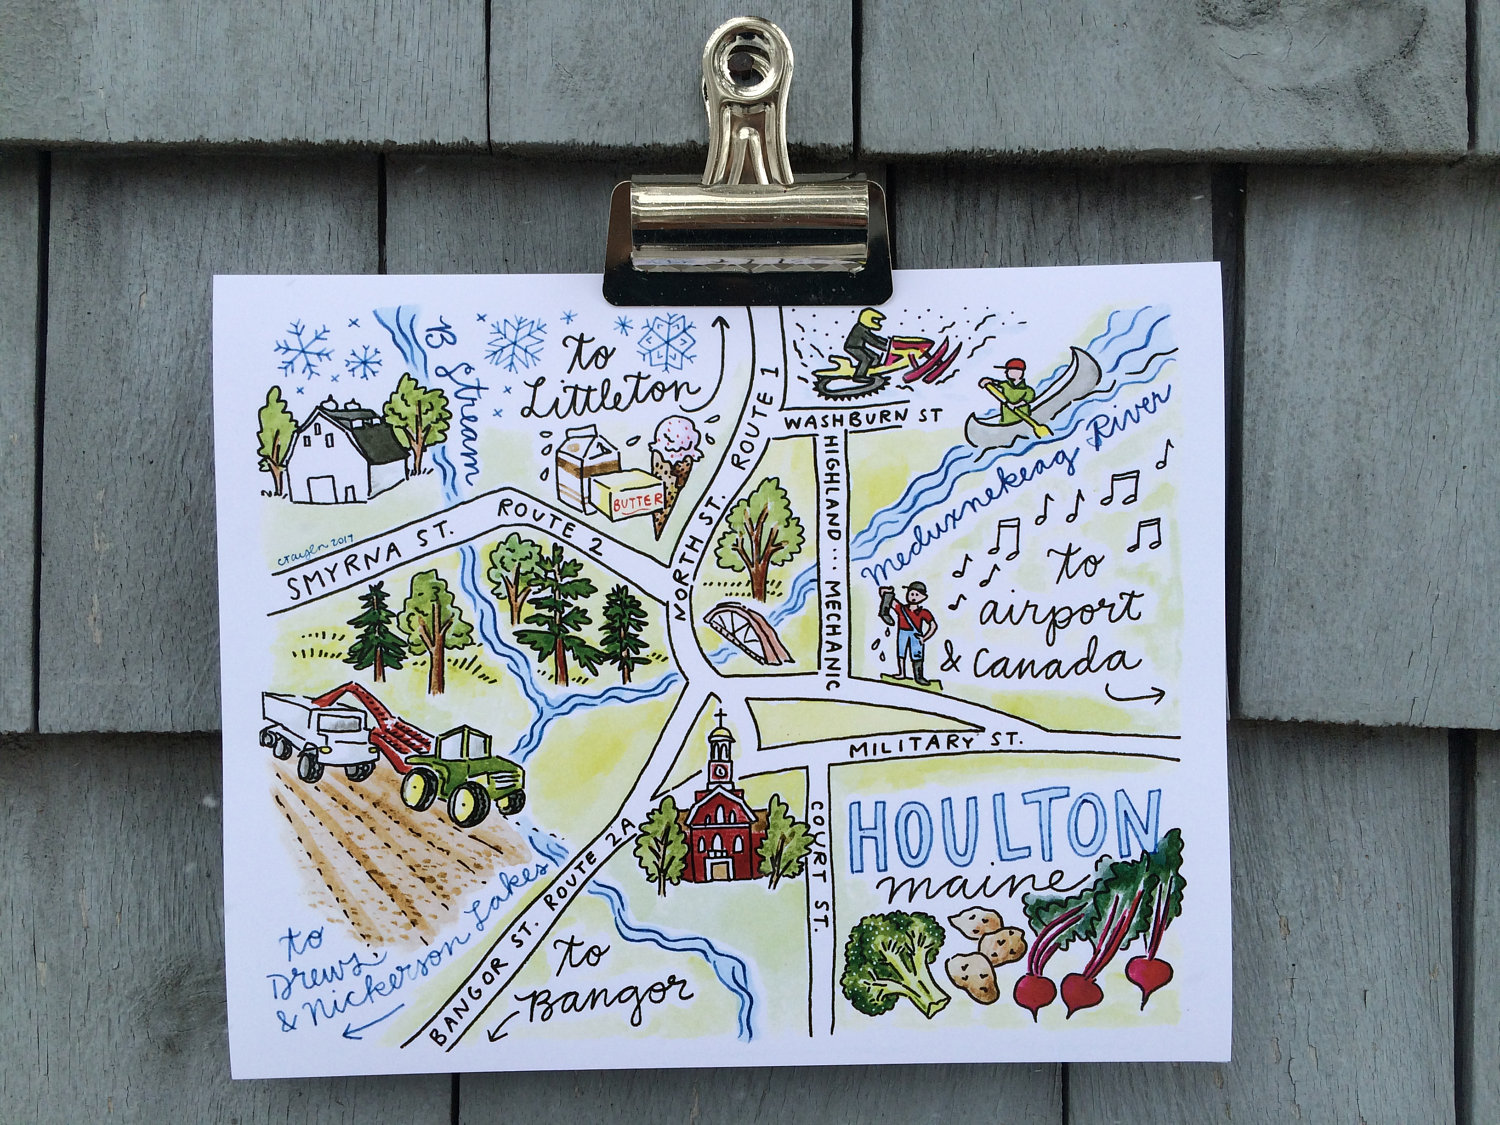 B Stream
to
Littleton
BUTTER
ROUTE 1
NORTH ST.
WASHBURN ST
HIGHLAND .... MECHANIC
Meduxnekeag River
SMYRNA ST.
ROUTE 2
to
airport
& Canada
MILITARY ST.
COURT ST.
HOULTON
maine
BANGOR ST. ROUTE 2A
to
Drews
& Nickerson Lakes
to
Bangor